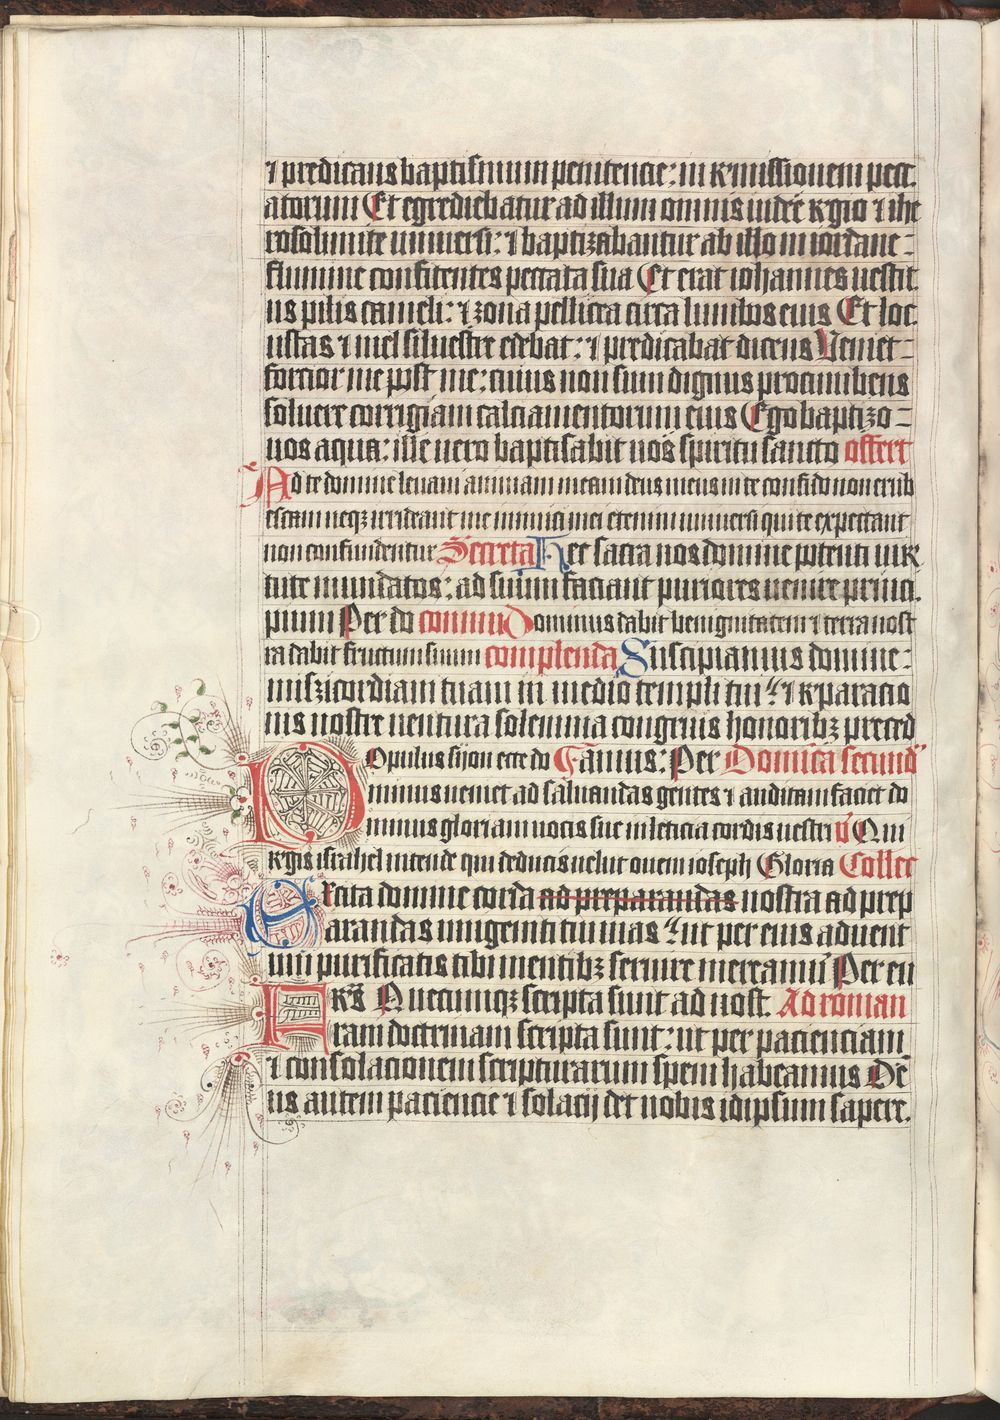 ⁊ predicans baptismum penitencie: in remissionem pecc
atorum Et egrediebatur ad illum omnis iudee regio ⁊ ihe
rosolimite uniuersi: ⁊ baptizabantur ab illo in iordane-
flumine confitentes peccata sua Et erat iohannes uestit
us pilis cameli: ⁊ zona pellicea circa lumbos eius Et loc
ustas ⁊ mel siluestre edebat: ⁊ predicabat dicens Veniet-
forcior me post me: cuius non sum dignus procumbens
soluere corrigiam calciamentorum eius Ego baptizo-
uos aqua: ille uero baptisabit uos spiritu sancto offert
Ad te domine leuaui animam meam deus meus in te confido non erub
escam neqꝫ irrideant me inimici mei etenim uniuersi qui te expectant
non confundentur Secreta Hec sacra nos domine potenti uir
tute mundatos: ad suum faciant puriores uenire princi
pium Per do commu Dominus dabit benignitatem ⁊ terra nost
ra dabit fructum suum complenda Suscipiamus domine:
misẜicordiam tuam in medio templi tui: ⁊ reparacio
nis nostre uentura solemnia congruis honoribꝫ preced
Populus sijon ecce do amus: Per Domica secund
minus ueniet ad saluandas gentes ⁊ auditam faciet do
minus gloriam uocis sue in leticia cordis uestri v̄ Qui
regis israhel intende qui deducis uelut ouem ioseph Gloria Collec
Excita domine corda ad preparandas nostra ad prep
arandas unigeniti tui uias: ut per eius aduent
um purificatis tibi mentibꝫ seruire mereamur̄ Per eu
Fr̄s Quecumqꝫ scripta sunt ad nost. Ad roman
ram doctrinam scripta sunt: ut per pacienciam
⁊ consolacionem scripturarum spem habeamus De
us autem paciencie ⁊ solacij det nobis idipsum sapere.